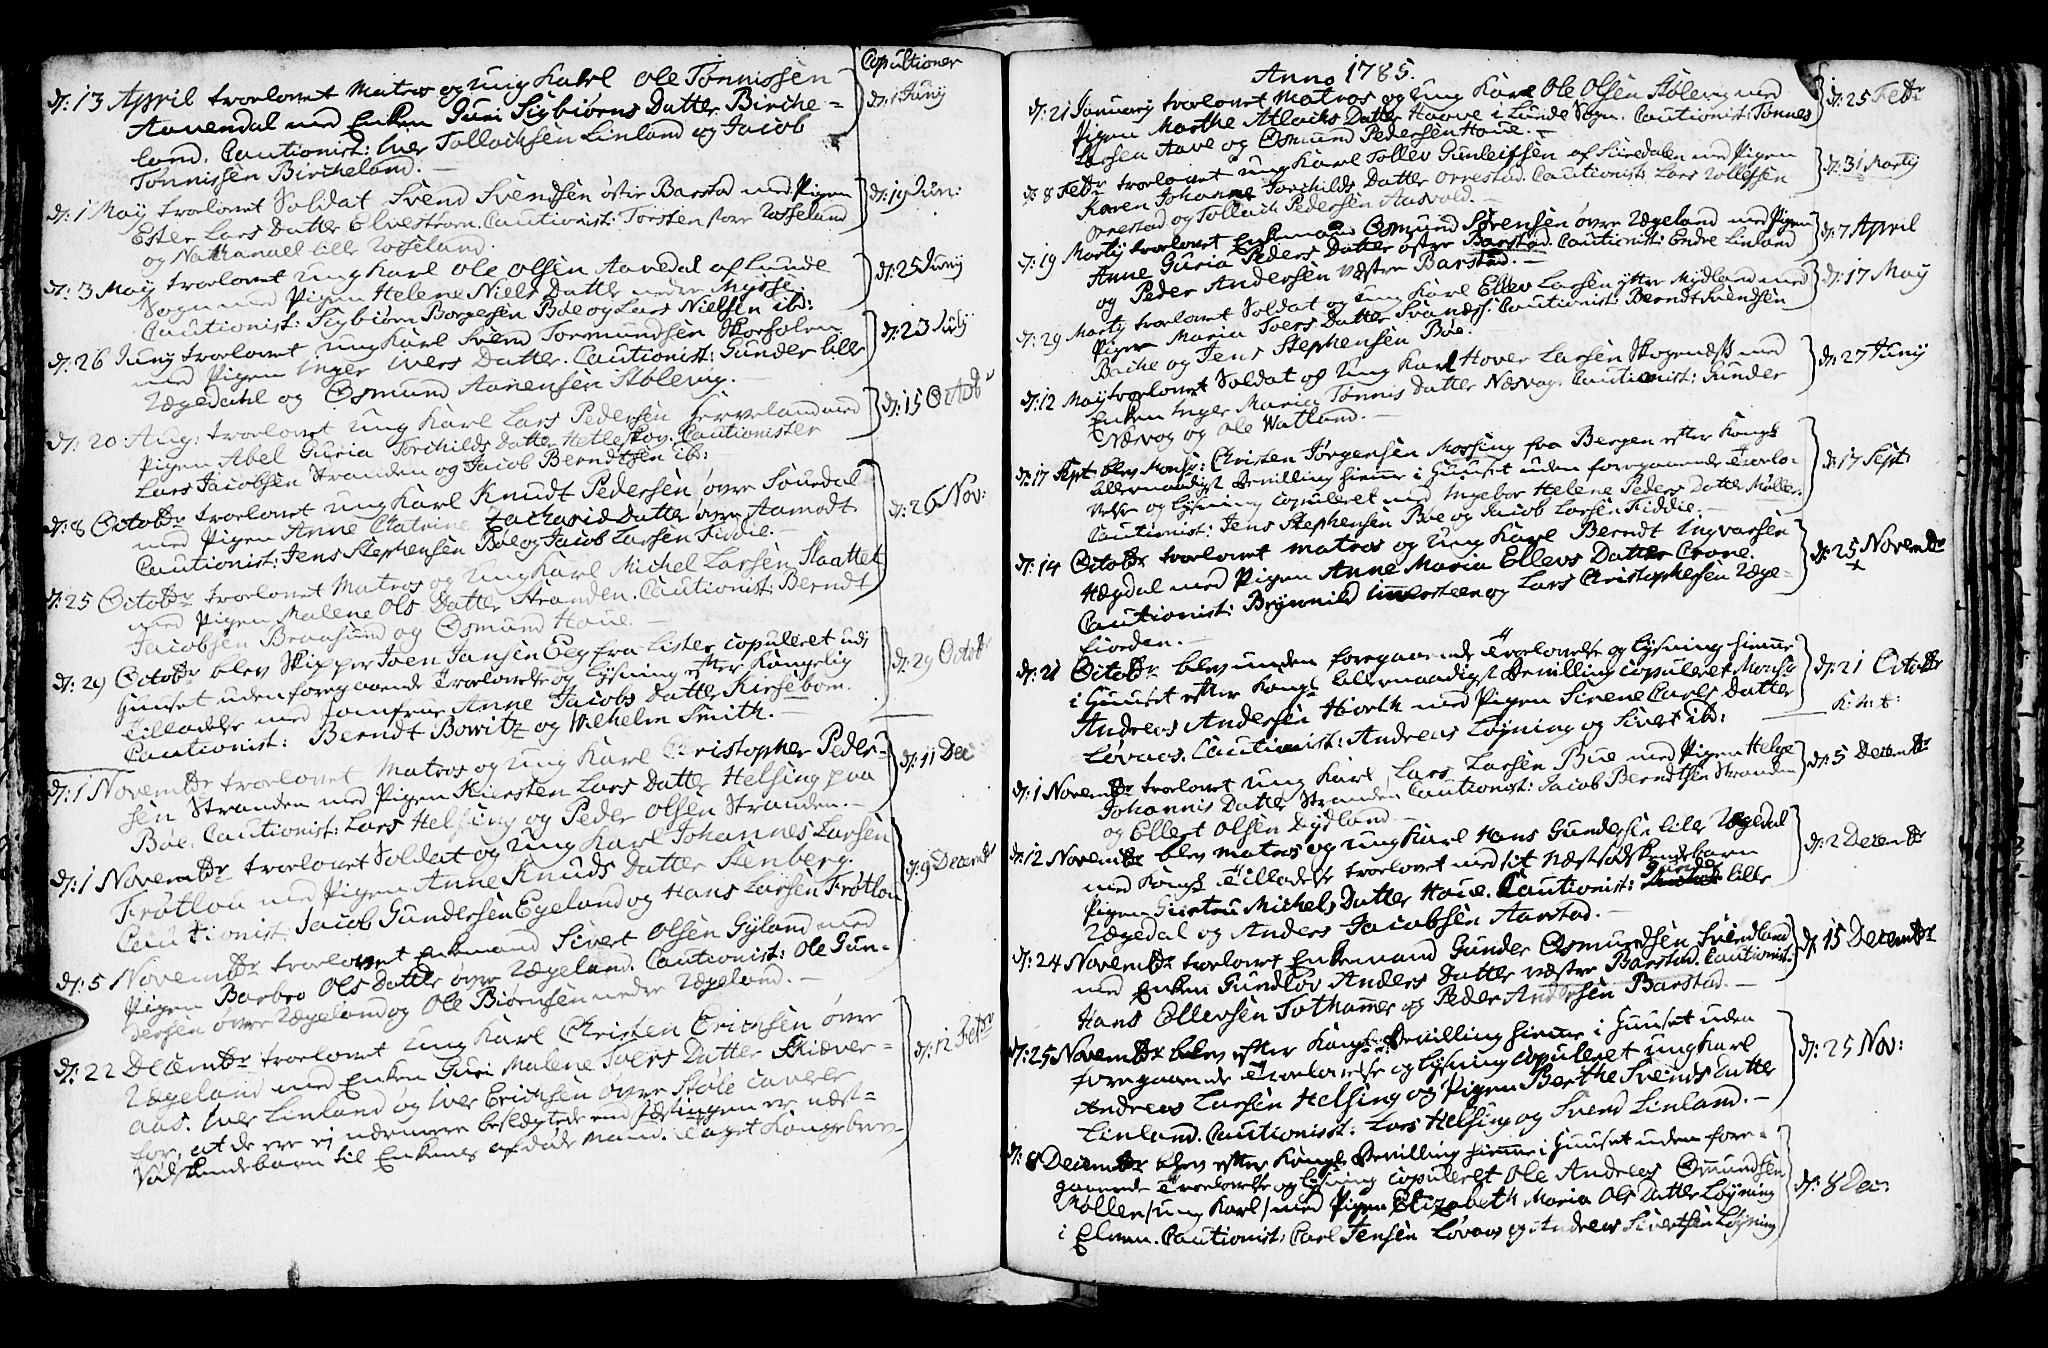 Copultioner
d: 13 April troelovet Matros og Ung Karl Ole Tønnissen
d: 1 Junij
Aanendal med Enken Guri Sigbiørns Datter Birche-
land. Cautionist: Iver Tollachsen Linland og Jacob
Tønnissen Bircheland.
d: 1 Maij troelovet Soldat Svend Svendsen østre Barstad med Pigen
d: 19 Jun:
Ester Lars Datter Elvestrøm. Cautionist: Torsten store Rosseland
og Nathanael lille Rosseland.
d: 3 Maij troelovet Ung Karl Ole Olsen Aavedal af Lunde
d: 25 Junij
Sogn med Pigen Helene Niels Datter nedre Mysse.
Cautionist: Sigbiørn Borgesen Bøe og Lars Nielsen ibd:
d: 26 Junij troelovet Ung Karl Svend Tormundsen Skorholen
d: 23 Julij
med Pigen Inger Ivers Datter. Cautionist: Gunder lille
Ægedahl og Osmund Aanensen Stølevig.
d: 20 Aug: troelovet Ung Karl Lars Pedersen Jerveland med
d: 15 Octobr
Pigen Abel Guria Torchilds Datter Hetleskog. Cautionister
Lars Jacobsen Stranden og Jacob Berndtsen ib:
d: 8 Octobr troelovet Ung Karl Knudt Pedersen øvre Souredal
d: 26 Nov:
med Pigen Anne Catrine Zacharie Datter øvre Aamodt.
Cautionist: Jens Stephensen Bøe og Jacob Larsen Fiddie.
d: 25 Octobr troelovet Matros og Ung Karl Michel Larsen Slaattet
med Pigen Malene Ols Datter Stranden. Cautionist: Berndt
Jacobsen Braasund og Osmund Houe.
d: 29 Octobr blev Skipper Joen Jansen Eeg fra Lister copuleret udi
d: 29 Octobr
Huuset uden foregaaende Troelovelse og Lysning efter Kongelig
Tilladelse med Jomfrue Anne Jacobs Datter Kirsebom.
Cautionist: Berndt Bowitz og Wilhelm Smith.
d: 1 Novembr troelovet Matros og Ung Karl Christopher Peder-
d: 11 Dec:
sen Stranden med Pigen Kiersten Lars Datter Helsing paa
Bøe. Cautionist: Lars Helsing og Peder Olsen Stranden.
d: 1 Novembr troelovet Soldat og Ung Karl Johannes Larsen
d: 9 Decembr
Frøtlou med Pigen Anne Knuds Datter Stenberg.
Cautionist. Jacob Gundersen Egeland og Hans Larsen Frøtlou
d: 5 Novembr troelovet Enkemand Sivert Olsen Gyland med
Pigen Barbro Ols Datter øvre Ægeland. Cautionist: Ole Gun-
dersen øvre Ægeland og Ole Biørnsen nedre Ægeland.
d: 22 Decembr troelovet Ung Karl Christen Erichsen øvre
d: 12 Febr
Ægeland med Enken Guri Malene Toers Datter Skiæver-
aas. Iver Linland og Iver Erichsen øvre Støle caverer
for, at de ere ej nærmere beslægtede end Fæstingen er næst-
Sødskendebarn til Enkens afdøde Mand. Taget Kongebrev
Anno 1785.
d: 21 Januarij troelovet Matros og Ung Karl Ole Olsen Stølevig med
d: 25 Febr
Pigen Marthe Atlachs Datter Haave i Lunde Sogn. Cautionist: Tønnes
Larsen Aave og Osmund Pedersen Houe.
d: 8 Febr troelovet Ung Karl Tollev Gunleifsen af Siredalen med Pigen
d: 31 Martij
Karen Johanne Torchilds Datter Orrestad. Cautionist: Lars Rollefsen
Orrestad og Tollach Pedersen Aasvold.
d: 19 Martij troelovet Enkemand Osmund Sørensen øvre Ægeland med Pigen
d: 7 April
Anne Guria Peders Datter østre Barstad. Cautionist: Endre Linland
og Peder Andersen Væstre Barstad.
d: 29 Martij troelovet Soldat og Ung Karl Ellev Larsen ytter Mydland med
d: 17 Maij
Pigen Maria Toers Datter Svanæs. Cautionist: Berndt Svendsen
Bache og Jens Stephensen Bøe.
d: 12 Maij troelovet Soldat og Ung Karl Hover Larsen Skogenæss med
d: 27 Junij
Enken Inger Maria Tønnis Datter Næsvog. Cautionist: Gunder
Næsvog og Ole Watland.
d: 17 Sept blev Monsr: Christen Jørgensen Mossing fra Bergen efter Kongl:
d: 17 Sept:
allernaadigst Bevilling hiemme i Huuset uden foregaaende Troelo-
velse og Lysning copuleret med Ingebor Helene Peders Datter Møller.
Cautionist: Jens Stephensen Bøe og Jacob Larsen Fiddie.
d: 14 Octobr troelovet Matros og Ung Karl Berndt Ingvarsen
d: 25 Novembr
Hægdal med Pigen Anne Maria Ellevs Datter Crone.
Cautionist: Brynnild og Lars Christophersen Ræge-
fiorden.
d: 21 Octobr blev uden foregaaende Troelovelse og Lysning hiemme
d: 21 Octobr
i Huuset efter Kongl: allernaadigst Bevilling copuleret Monsr
K: n: t:
Andreas Andersen Hiorth med Pigen Sirene Carls Datter
Løvaas. Cautionist: Andreas Løyning og Sivert ibd:
d: 1 Novembr troelovet Ung Karl Lars Larsen Bue med Pigen Helge
d: 5 Decembr
Johannis Datter Stranden. Cautionist: Jacob Berndtsen Stranden
og Ellert Olsen Dydland.
d: 12 Novembr blev Matros og Ung Karl Hans Gundersen lille Ægedal
d: 2 Decembr
med Kongl: Tilladelse troelovet med sit Næstsødskendebarn
Pigen Giertru Michels Datter Houe. Cautionist: Gunder lille
Ægedal og Anders Jacobsen Aarstad.
d: 24 Novembr troelovet Enkemand Gunder Osmundsen Svendland
d: 15 Decembr
med Enken Gundlov Anders Datter Væstre Barstad. Cautionist:
Hans Ellevsen Tothammer og Peder Andersen Barstad.
d: 25 Novembr blev efter Kongl: Bevilling hiemme i Huuset uden
d: 25 Nov:
foregaaende Troelovelse og Lysning copuleret Ung Karl
Andreas Larsen Helsing og Pigen Berthe Svends Datter
Linland. Cautionist: Lars Helsing og Svend Linland.
d: 8 Decembr blev efter Kongl: Bevilling hiemme i Huuset uden fore-
d: 8 Dec:
gaaende Troelovelse og Lysning copuleret Ole Andreas Omundsen
Møller /Ung Karl/ med Pigen Elizabeth Maria Ols Datter Løyning
i Elven. Cautionist: Carl Jensen Løvaas og Andreas Sivertsen Løyning